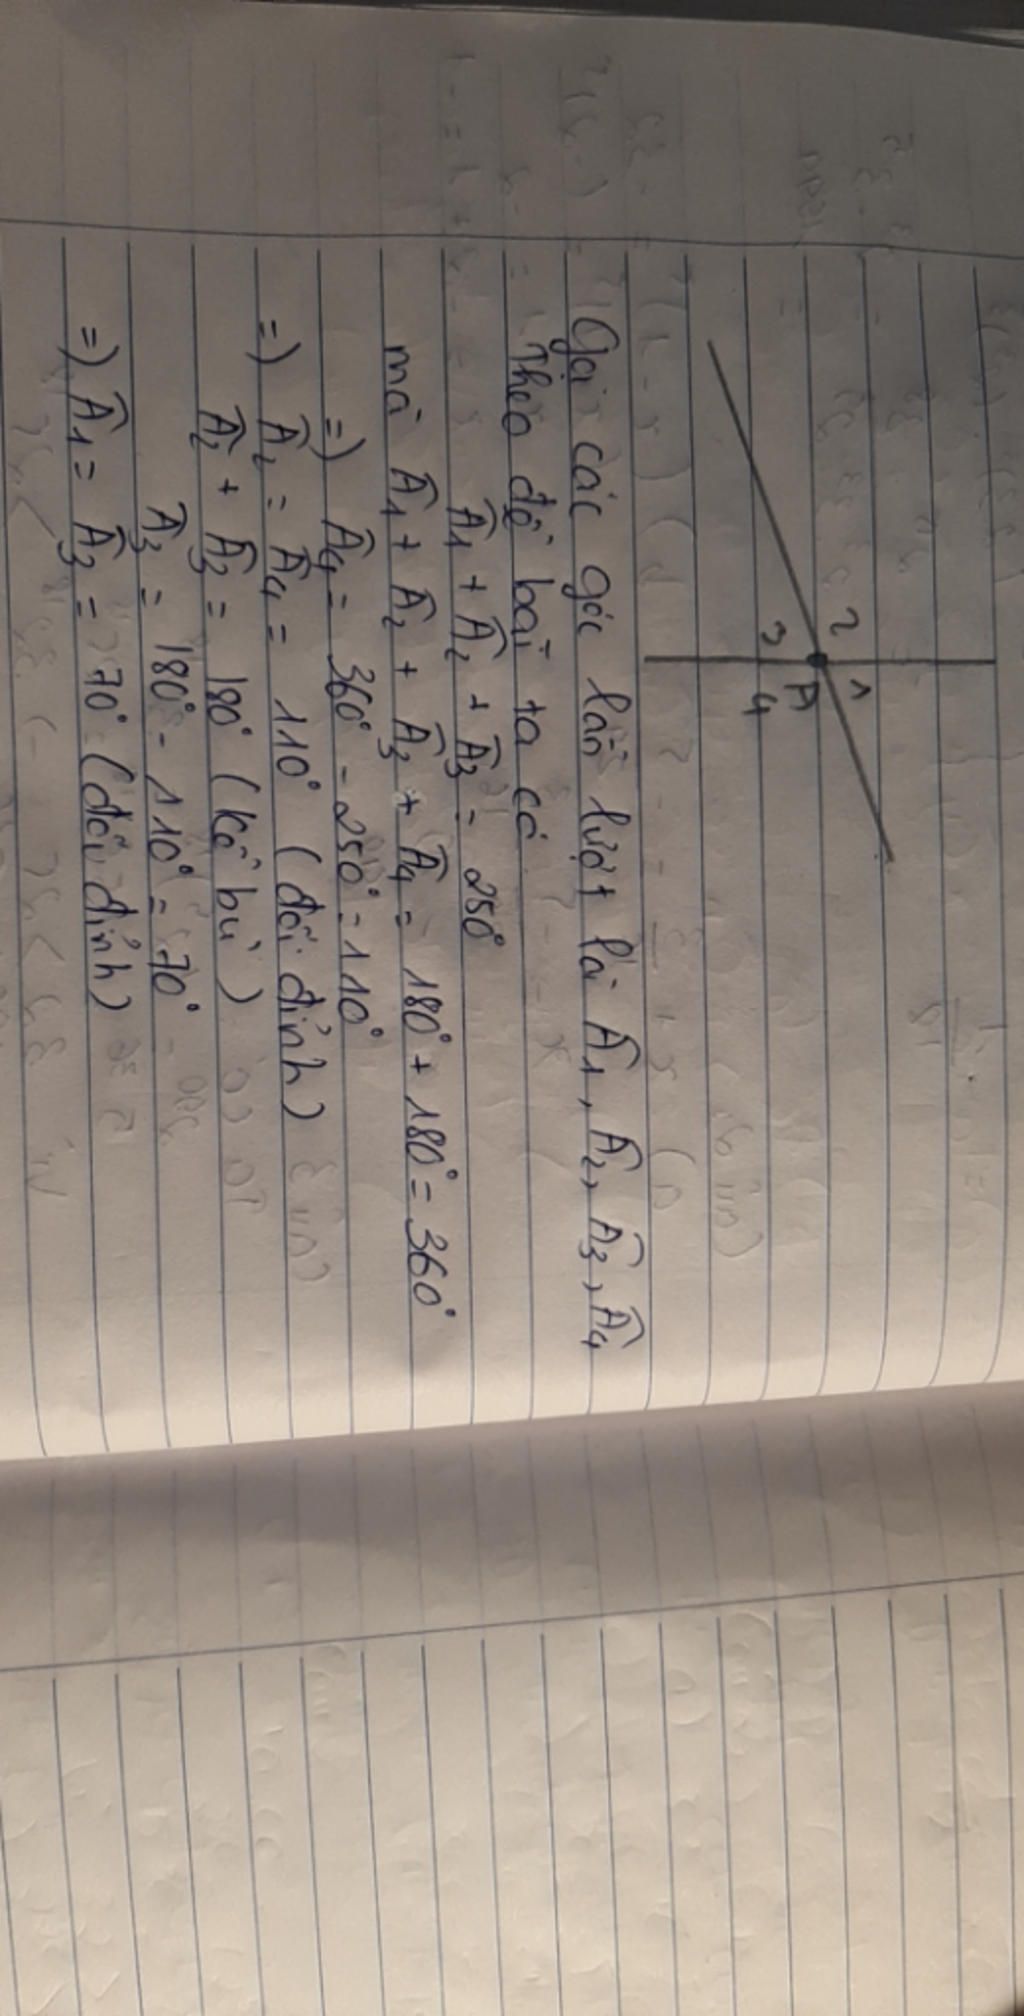 2 1
3 A
4
Gọi các góc lần lượt là Â1, Â2, Â3, Â4
Theo đề bài ta có
Â1 + Â2 + Â3 = 250°
mà Â1 + Â2 + Â3 + Â4 = 180° + 180° = 360°
=) Â4 = 360° - 250° = 110°
=) Â2 = Â4 = 110° (đối đỉnh)
Â2 + Â3 = 180° (kề bù)
Â3 = 180° - 110° = 70°
=) Â1 = Â3 = 70° (đối đỉnh)